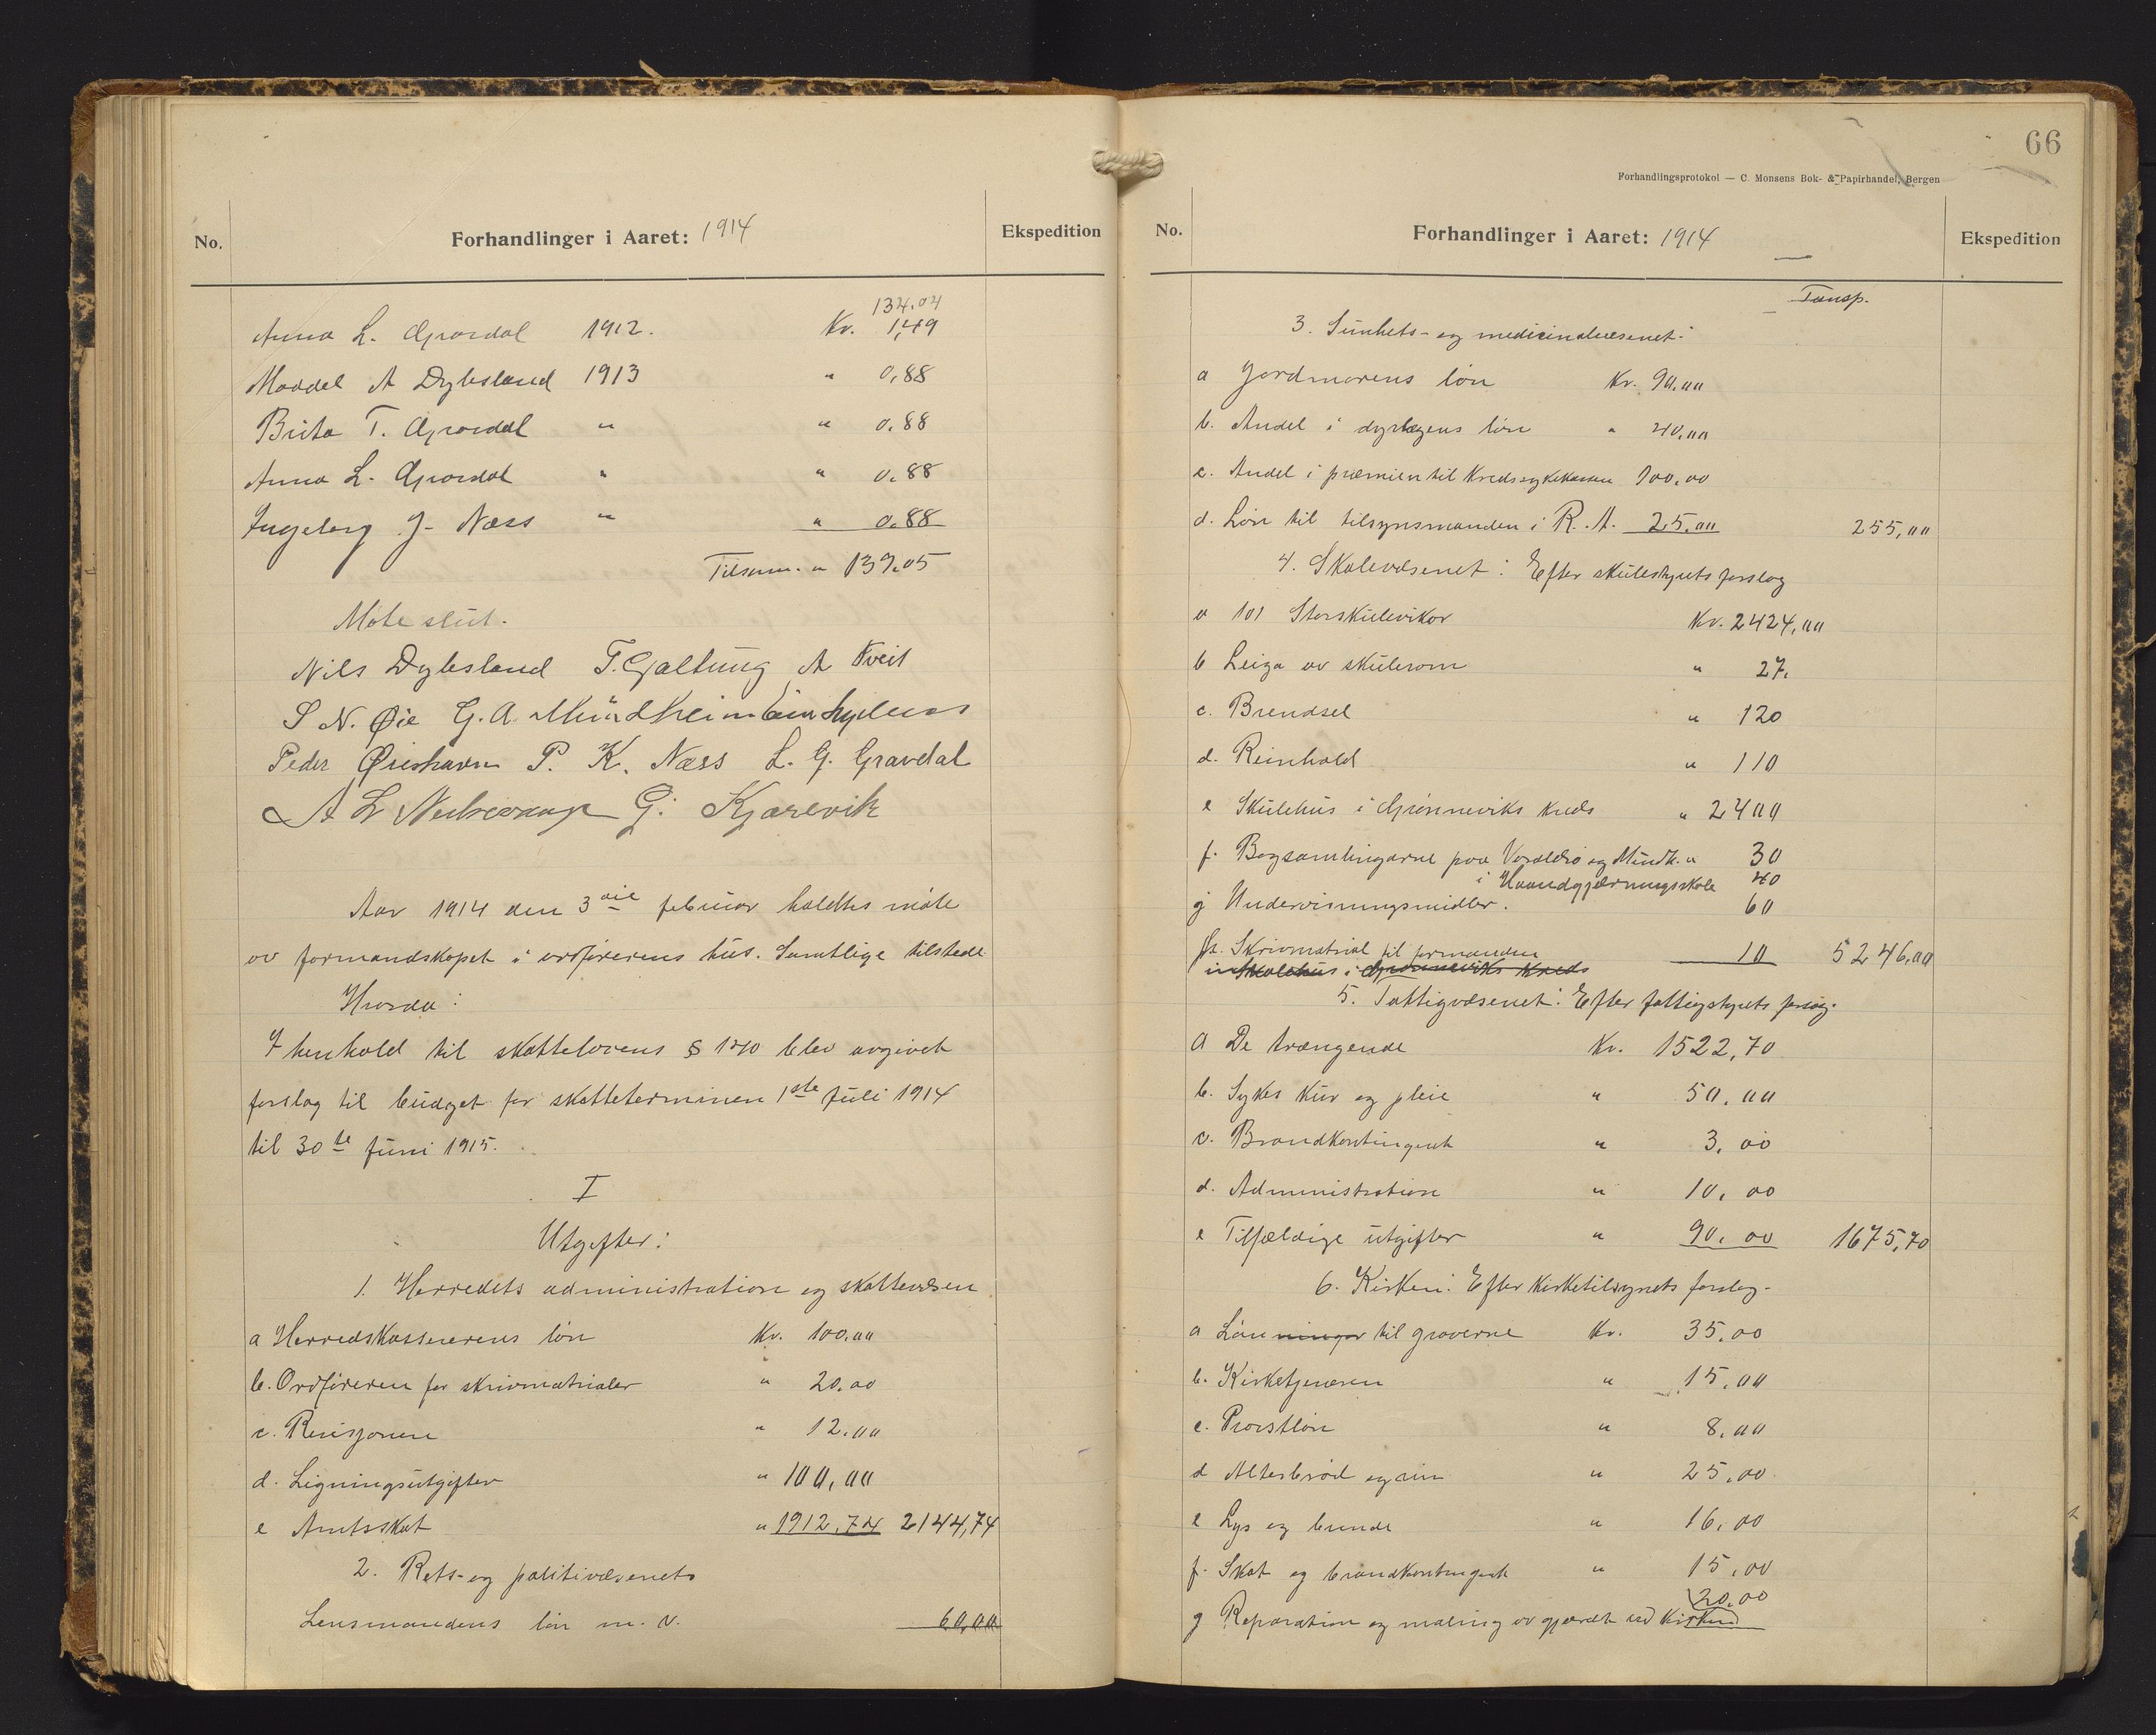 No.
Forhandlinger i Aaret: 1914
Ekspedition
134,04
Anna L. Gravdal 1912. Kr. 1,49
Maddel A Dybsland 1913 " 0,88
Brita T. Gravdal " " 0.88
Anna L. Gravdal " " 0.88
Ingeborg J. Næss " " 0.88
Tilsam. " 139.05
Møte slut.
Nils Dybsland T. Galtung A Tveit
S N. Øie G. A. Mundheim
Peder Øieshavn P. K. Næss L. G. Gravdal
A L G. Kjærevik
Aar 1914 den 3die februar holdtes møte
av formandskapet i ordførerens hus. Samtlige tilstede
Hvorda:
I henhold til skattelovens § 120 blev avgivet
forslag til budget for skatteterminen 1ste Juli 1914
til 30te Juni 1915.
I
Utgifter:
1. Herredets administration og skattevæsen
a Herredskassererens løn Kr. 100.00
b. Ordføreren for skrivmatrialer " 20.00
c. Revisjonen " 12.00
d. Ligningsutgifter " 100,00
e Amtsskat " 1912,74 2144,74
2. Rets- og politivæsenets
Lensmandens løn m. v. 60,00
66
Forhandlingsprotokol — C. Monsens Bok- & Papirhandel, Bergen
No.
Forhandlinger i Aaret: 1914
Ekspedition
Transp.
3. Sunhets- og medicinalvæsenet:
a Jordmorens løn Kr. 90.00
b. Andel i dyrlægens løn " 40,00
c. Andel i præmien til Kredssykekassen 100,00
d. Løn til tilsynsmanden i R. A. 25.00 255,00
4. Skolevæsenet: Efter skulestyrets forslag
a 101 Storskulevikor Kr. 2424,00
b Leiga av skulerom " 27.
c. Brendsel " 120
d. Reinhold " 110
e Skulehus i Grønneviks kreds " 2400
f. Bogsamlingarne paa Varaldsø og Mundh. " 30
i Haandgjerningsskole 40
g Undervisningsmidler. 60
h. Skrivmatrial til formanden 10 5246,00
Skolehus i Grønneviks Kreds
5. Fattigvæsenet: Efter fattigstyrets forslag.
a De trængende Kr. 1522,70
b. Sykes kur og pleie " 50,00
c. Brandkontingent " 3,00
d. Administration " 10,00
e Tilfældige utgifter " 90,00 1675,70
6. Kirken: Efter kirketilsynets forslag.
a Lønninger til graverne Kr. 35.00
b. Kirketjeneren " 15,00
c. Provstløn " 8,00
d Alterbrød og vin " 25,00
e Lys og brende " 16,00
f. Skat og brandkontingent " 15,00
20.00
g Reparation og maling av gjærdet ved Kirken